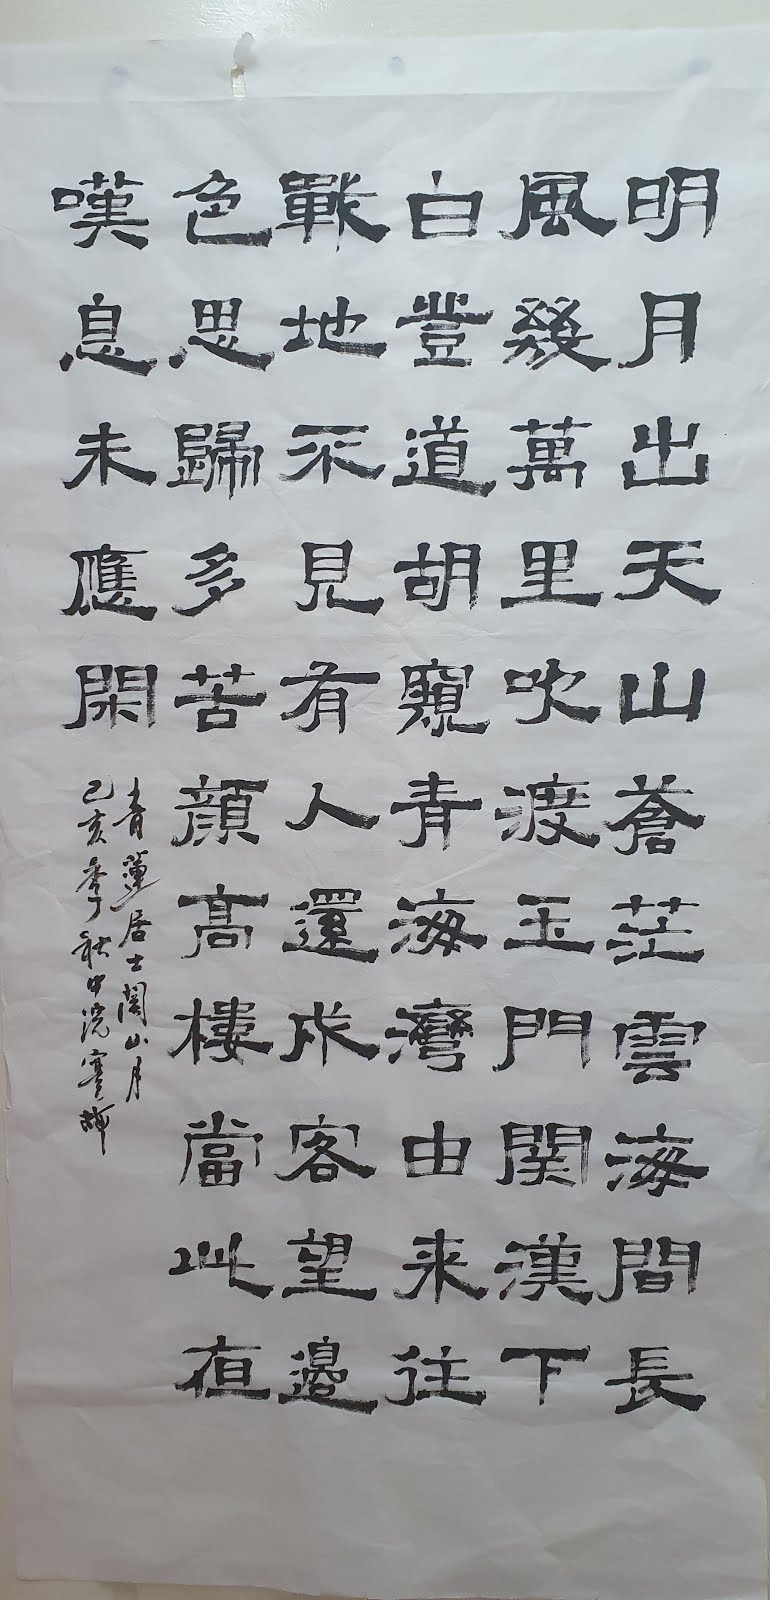 明月出天山蒼茫雲海間長
風幾萬里吹渡玉門関漢下
白登道胡窺青海灣由来往
戰地不見有人還戍客望邊
色思歸多苦顔高樓當此夜
嘆息未應閑
青蓮居士關山月
己亥季秋中浣